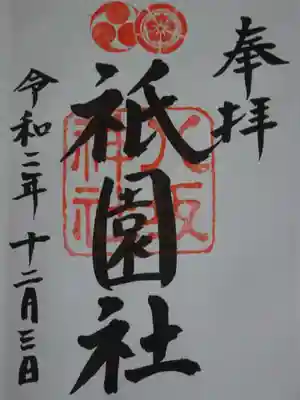 奉拝
祇園社
八坂神社
令和二年十二月三日